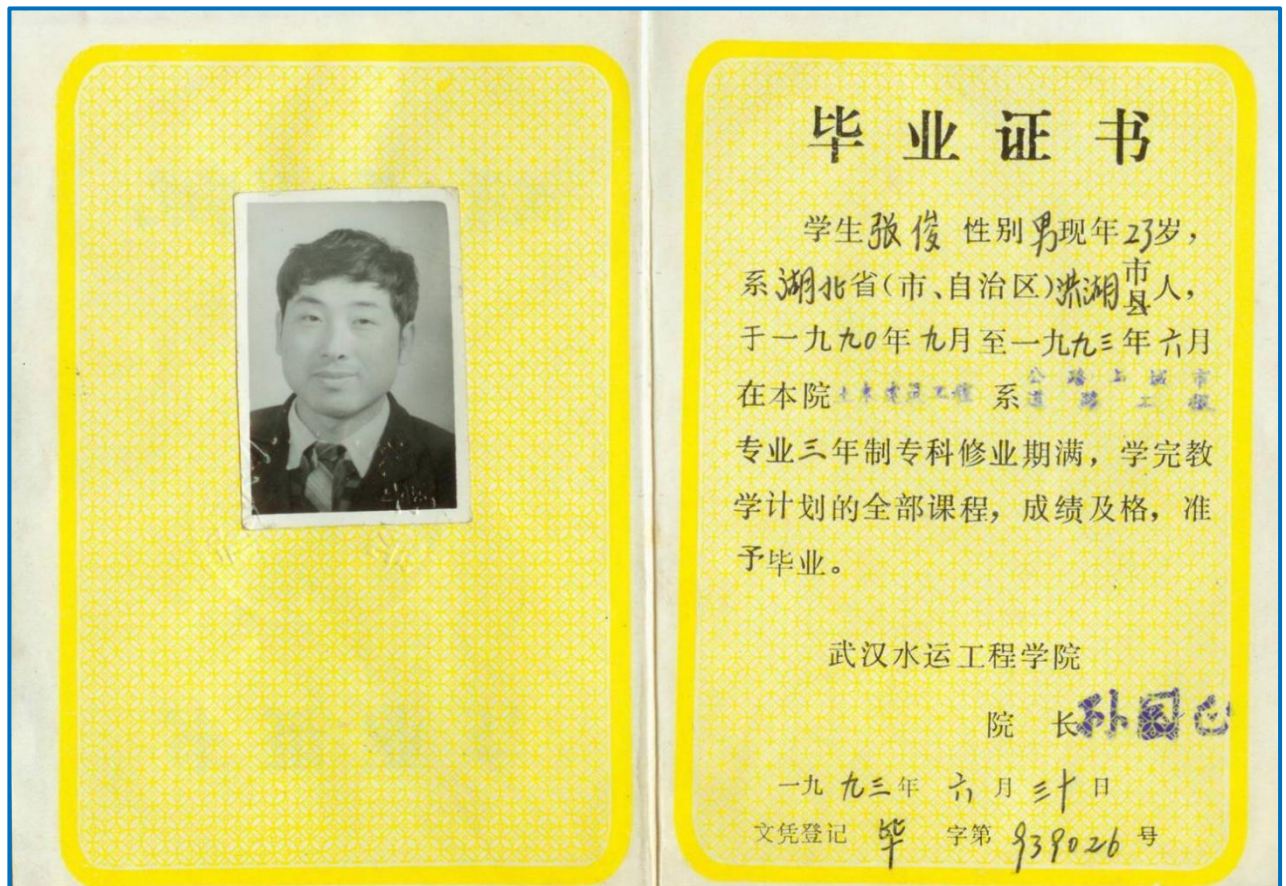 毕业证书
学生张俊 性别男现年23岁，
系湖北省(市、自治区)洪湖市县人，
于一九九0年九月至一九九三年六月
在本院土木建筑工程系公路与城市道路工程
专业三年制专科修业期满，学完教
学计划的全部课程，成绩及格，准
予毕业。
武汉水运工程学院
院 长
一九九三年 六月三十日
文凭登记 毕 字第 939026 号